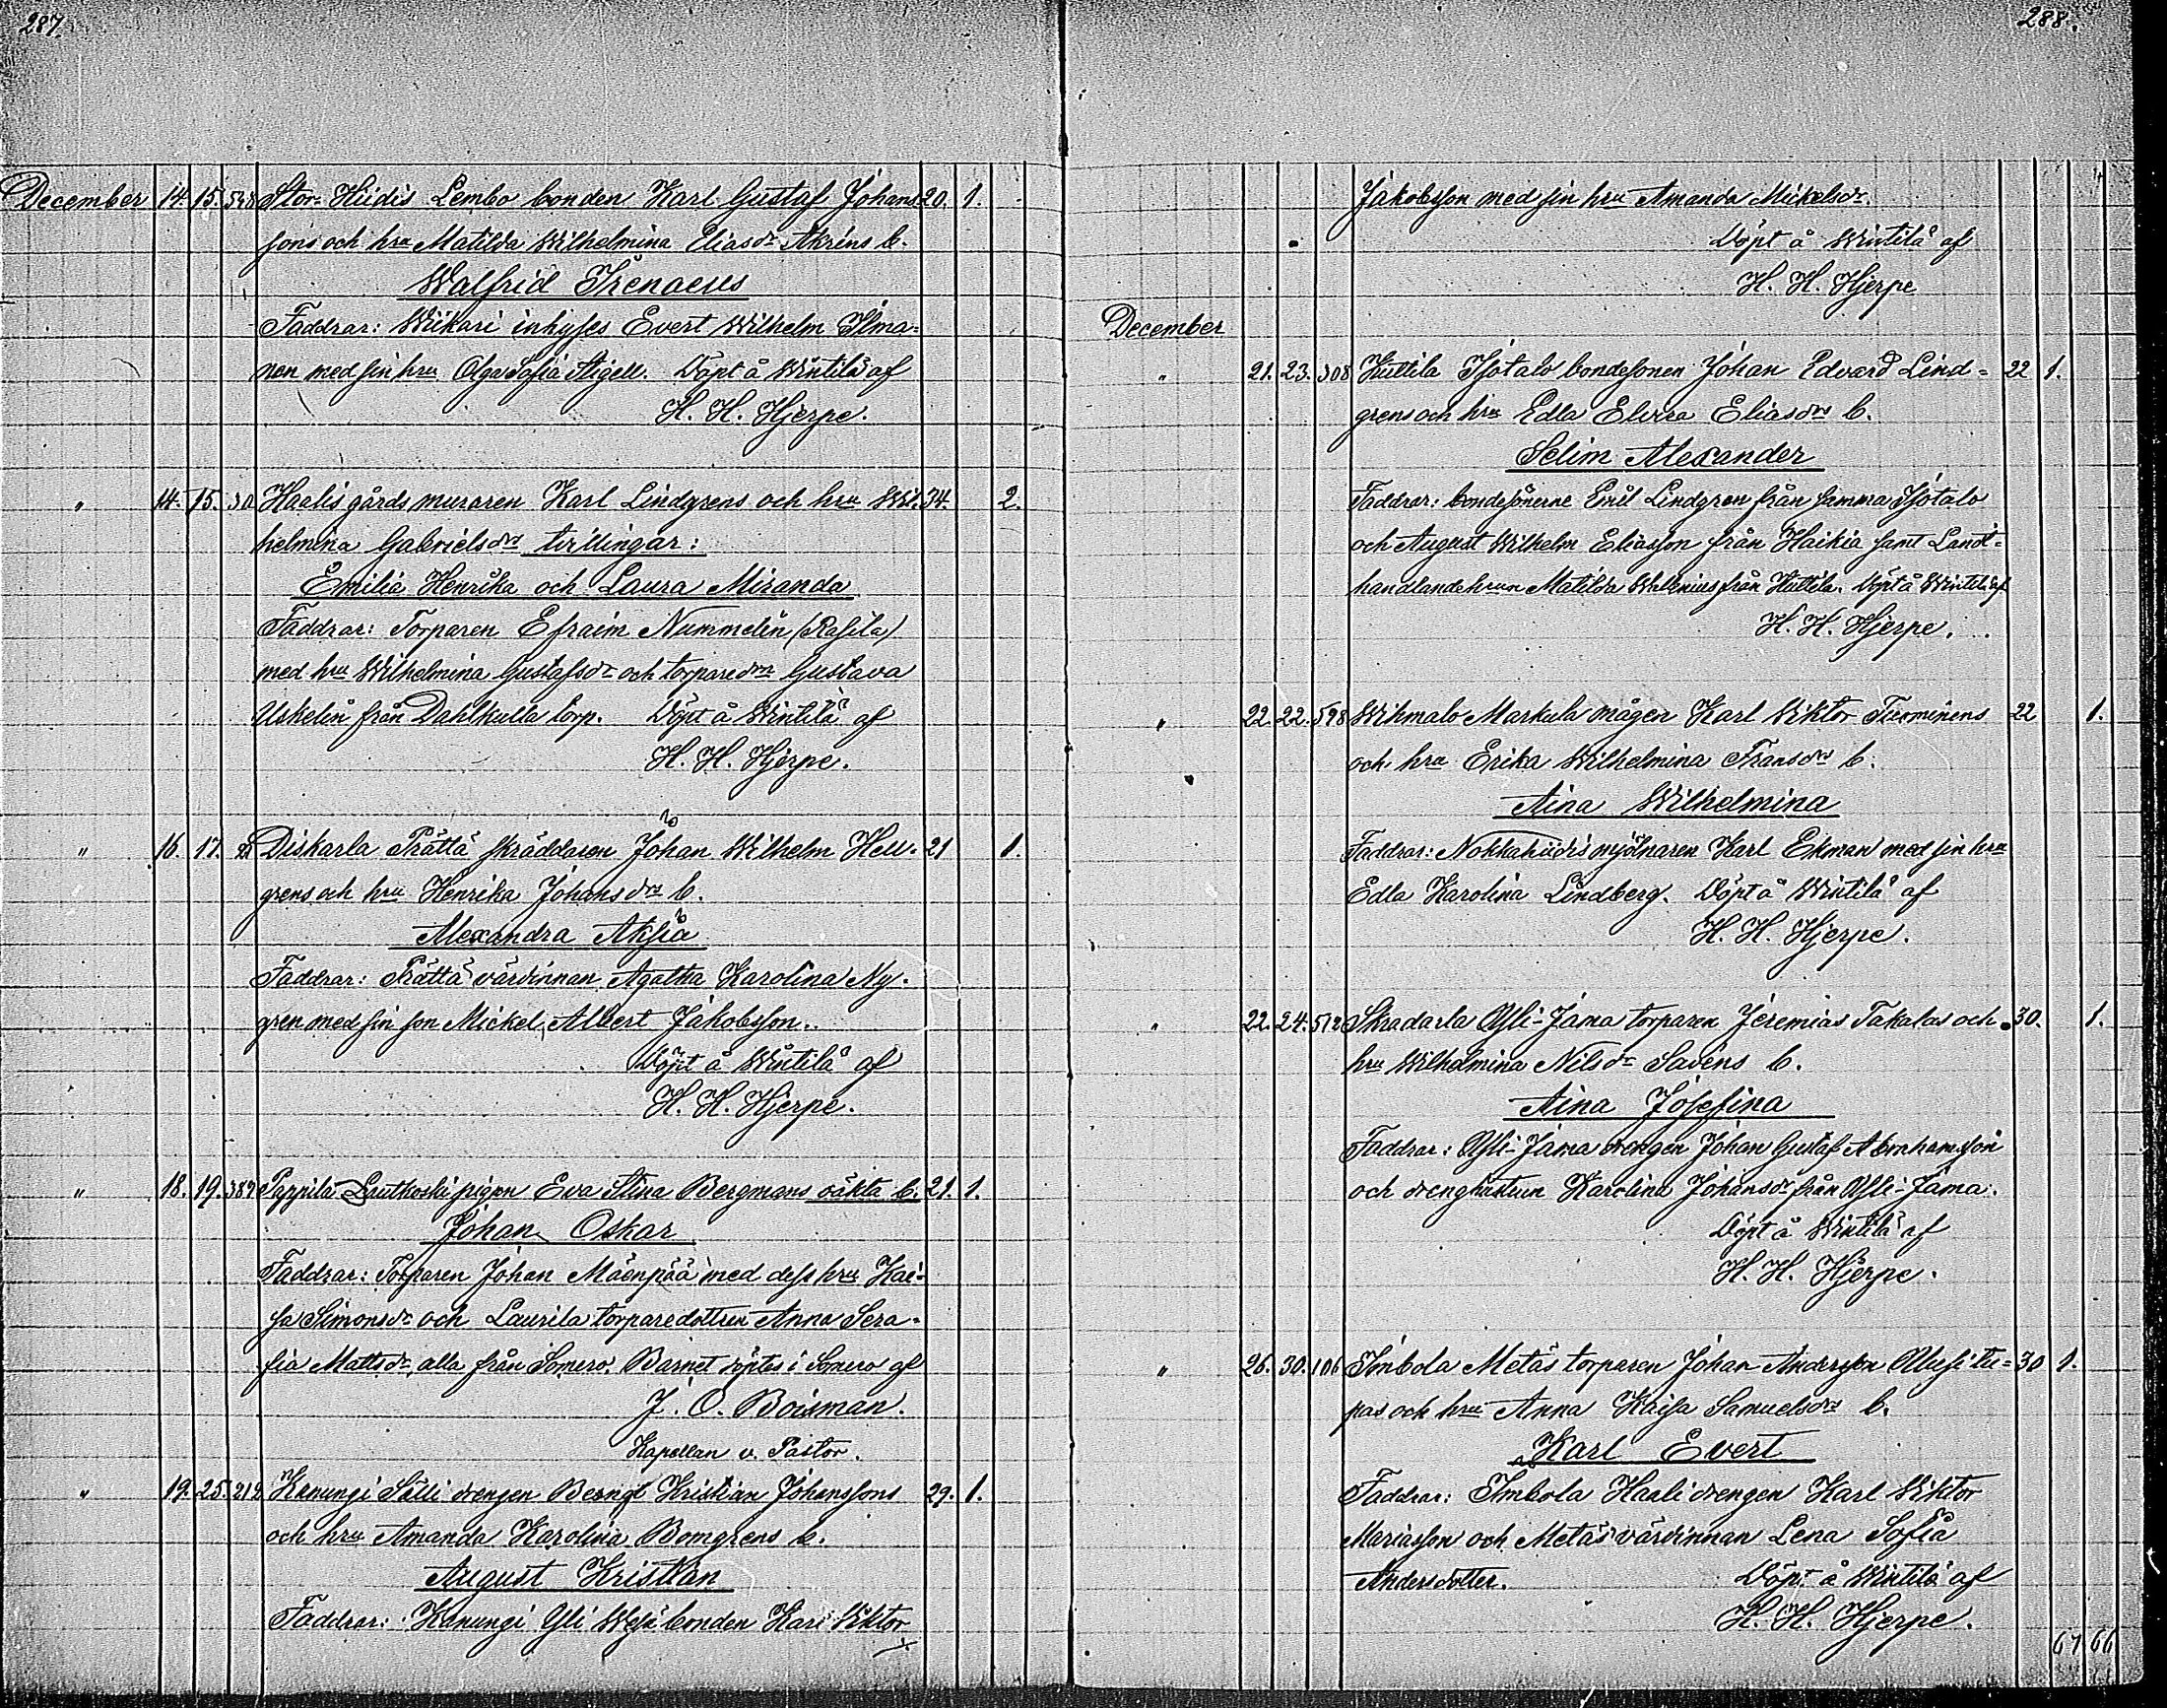 287.
December 14. 15. 548 Stor-Hiidis Lembo bonden Karl Gustaf Johans 20. 1.
sons och hru Matilda Wilhelmina Eliasdr Akréns b.
Walfrid Irenaeus
Faddrar: Wiikari inhyses Evert Wilhelm Ilma-
nen med sin hru Olga Sofia Aigell. Döpt å Wintilä af
H. H. Hjerpe.
" 14. 15. 30 Haalis gårds muraren Karl Lindgrens och hru Wil- 34. 2.
helmina Gabrielsdrs tvillingar:
Emilia Henrika och Laura Miranda
Faddrar: Torparen Efraim Nummelin (Rasila)
med hru Wilhelmina Gustafsdr och torparedrn Gustava
Uskelin från Dahlkulla torp. Döpt å Wintilä af
H. H. Hjerpe.
" 16. 17. Diskarla Prättä skräddaren Johan Wilhelm Hell- 21 1.
grens och hru Henrika Johansdrs b.
Alexandra Aksia
Faddrar: Prättä värdinnan Agatha Karolina Ny-
gren med sin son Mickel Albert Jakobsson.
Döpt å Wintilä af
H. H. Hjerpe.
" 18. 19. 387 Pappila Lautkoski pigan Eva Stina Bergmans oäkta b. 21. 1.
Johan Oskar
Faddrar: Torparen Johan Mäenpää med dess hru Kai-
sa Simonsdr och Laurila torparedottren Anna Sera-
fia Mattsdr, alla från Somero. Barnet döptes i Somero af
J. O. Boisman.
Kapellan v. Pastor.
" 19. 25. 212 Kanungi Sälli drengen Berngt Kristian Johanssons 29. 1.
och hru Amanda Karolina Bomgrens b.
August Kristian
Faddrar: Kanungi Yli Wesi bonden Karl Viktor
288.
Jakobsson med sin hru Amanda Mickelsdr.
Döpt å Wintilä af
H. H. Hjerpe
December
" 21. 23. 308 Huttila Isotalo bondesonen Johan Edvard Lind- 22 1.
grens och hru Edla Elvira Eliasdrs b.
Selim Alexander
Faddrar: bondesönerne Emil Lindgren från samma Isotalo
och August Wilhelm Eliasson från Haikia samt Landt-
handlandehrun Matilda Wallenius från Huttila. Döpt å Wintilä af
H. H. Hjerpe.
" 22. 22. 598 Wihmalo Markula mågen Karl Viktor Tuominens 22 1.
och hru Erika Wilhelmina Fransdrs b.
Aina Wilhelmina
Faddrar: Nokkahiidis mjölnaren Karl Ekman med sin hru
Edla Karolina Lindberg. Döpt å Wintilä af
H. H. Hjerpe.
" 22. 24. 512 Skradarla Yli-Jama torparen Jeremias Takalas och 30. 1.
hru Wilhelmina Nilsdr Savéns b.
Aina Josefina
Faddrar: Yli-Jama drengen Johan Gustaf Abrahamsson
och drenghustrun Karolina Johansdr från Yli-Jama.
Döpt å Wintilä af
H. H. Hjerpe.
" 26. 30. 106 Imbola Metäs torparen Johan Andersson Uusitu- 30 1.
pas och hru Anna Kaisa Samuelsdrs b.
Karl Evert
Faddrar: Imbola Haali drengen Karl Viktor
Mariasson och Metäs värdinnan Lena Sofia
Andersdotter. Döpt å Wintilä af
H. H. Hjerpe.
67 66